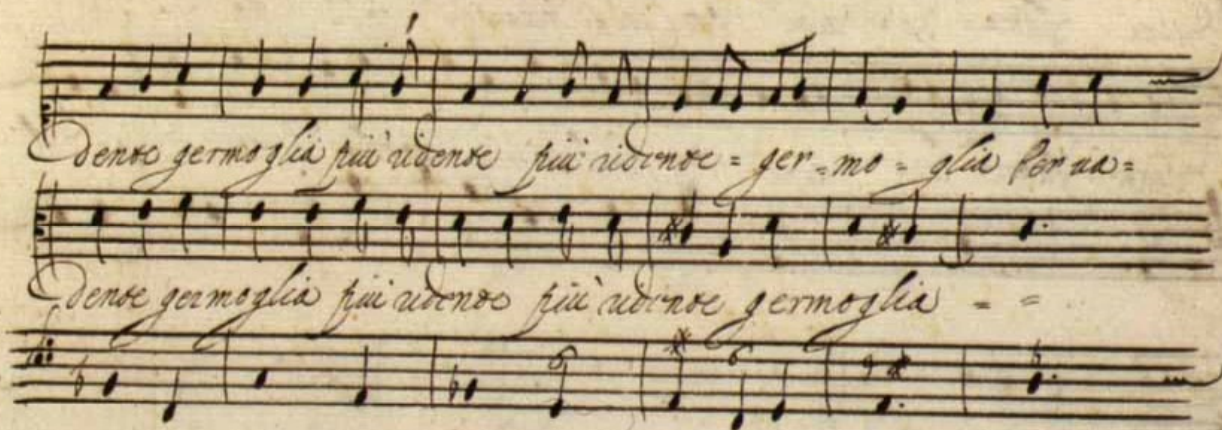 dente germoglia più ridente più ridente = ger = mo = glia Per va =
dente germoglia più ridente più ridente germoglia = =